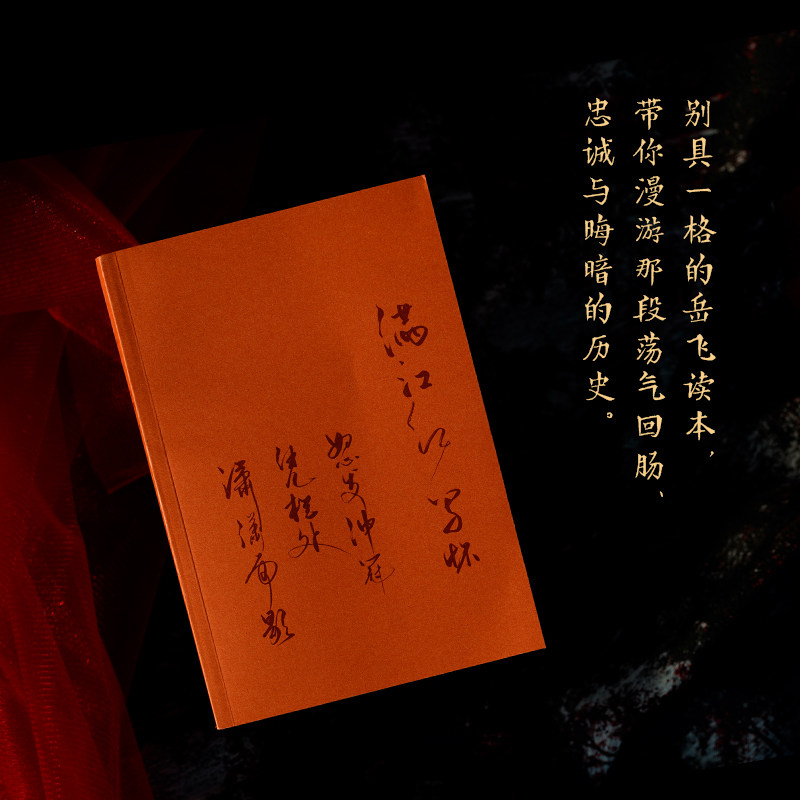 别具一格的岳飞读本，
带你漫游那段荡气回肠、
忠诚与晦暗的历史。
满江红 写怀
怒发冲冠
凭栏处
潇潇雨歇